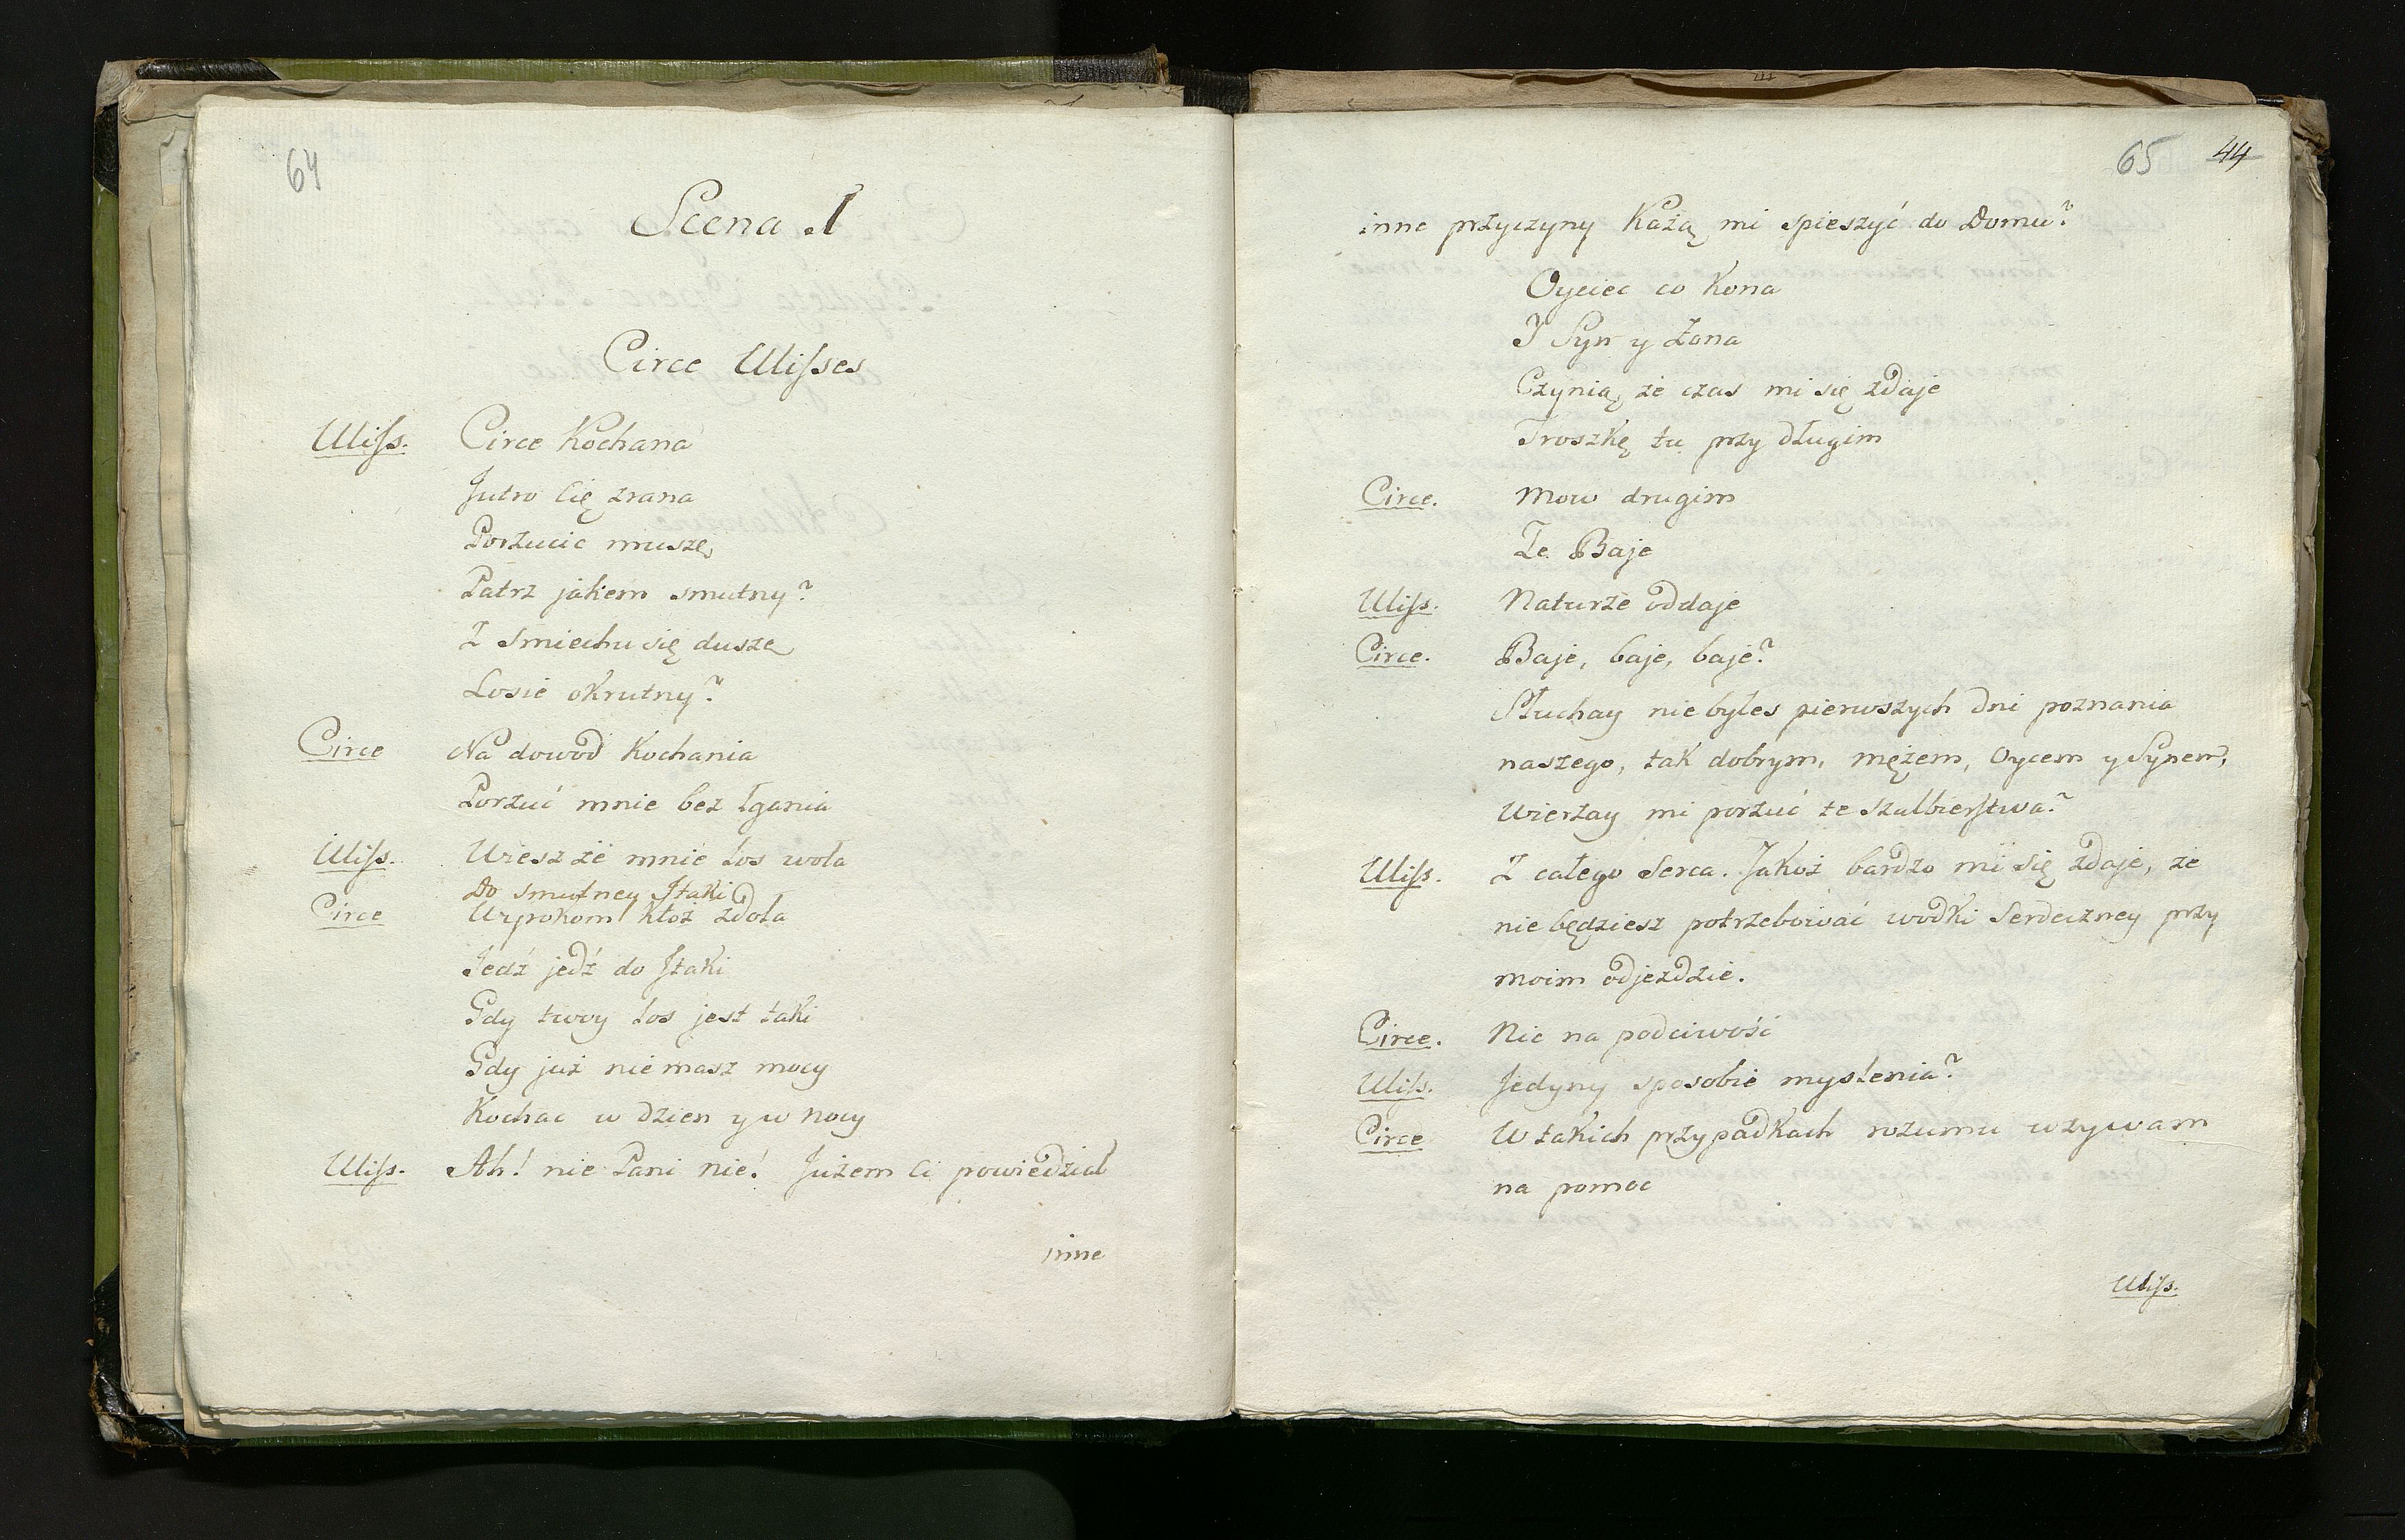 64
Scena I
Circe Ulisses
Uliss. Circe Kochana
Jutro Cię zrana
Porzucic muszę
Patrz jakem smutny?
Z smiechu się duszę
Losie okrutny?
Circe Na dowod Kochania
Porzuć mnie bez łgania
Uliss. Wiesz że mnie los woła
Do smutney Itaki
Circe Wyrokom ktoż zdoła
Jedź jedź do Itaki
Gdy twoy los jest taki
Gdy już nie masz mocy
Kochac w dzien y w nocy
Uliss. Ah! nie Pani nie! Jużem Ci powiedział
inne
65 44
inne przyczyny Każą mi spieszyć do Domu?
Oyciec co Kona
I Syn y Żona
Czynią, że czas mi się zdaje
Troszkę tu przy długim
Circe. Mow drugim
Te Baje
Uliss. Naturze oddaje
Circe. Baje, baje, baje?
Słuchay nie byłes pierwszych dni poznania
naszego, tak dobrym, mężem, Oycem y Synem,
Wierzay mi porzuć te szalbierstwa?
Uliss. Z całego Serca. Jakoż bardzo mi się zdaje, że
nie będziesz potrzebować wodki Serdeczney przy
moim odjezdzie.
Circe. Nie na podciwość
Uliss. Jedyny sposobie myslenia?
Circe W takich przypadkach rozumu wzywam
na pomoc
Uliss.